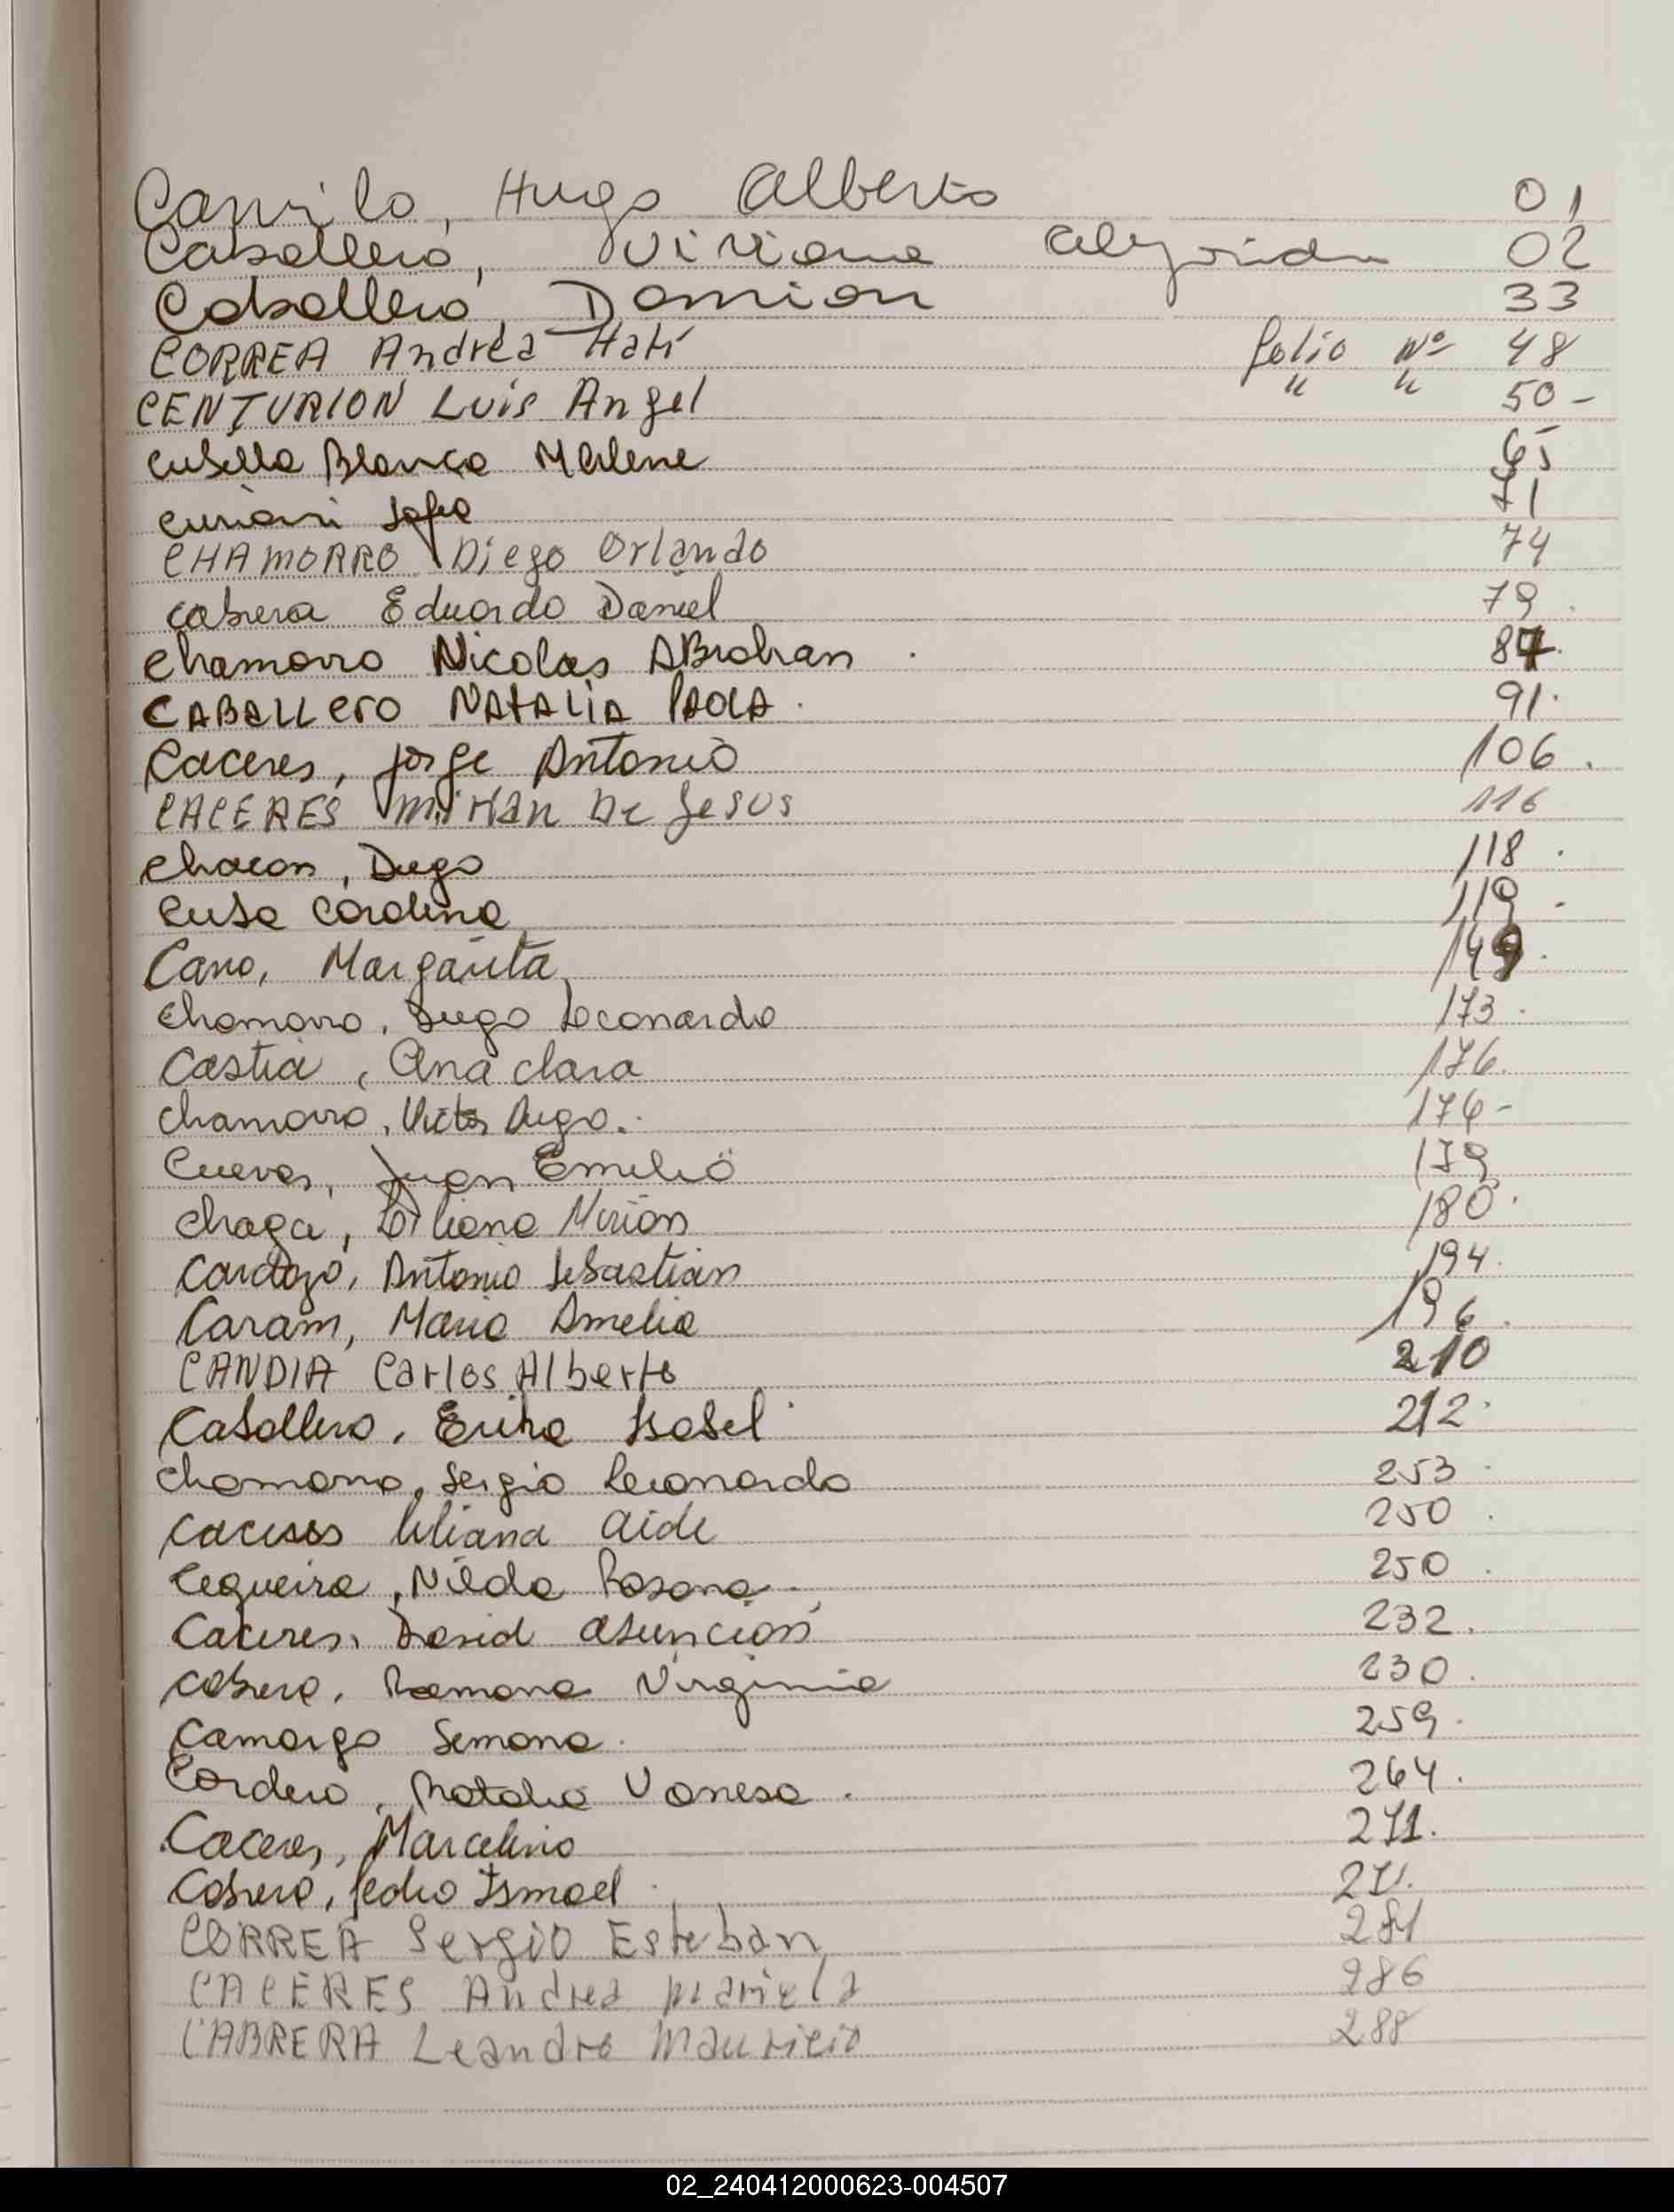 Camilo, Hugo Alberto 01
Caballero, Viviana Alejandra 02
Caballero, Damian 33
CORREA Andrea Itatí folio Nº 48
CENTURION Luis Angel " " 50-
Cubilla Blanca Marlene 65
Curiani Sofia 71
CHAMORRO Diego Orlando 74
Cabrera Eduardo Daniel 79.
Chamorro Nicolas ABrahan. 87.
CABALLERO NATALIA PAOLA. 91.
Caceres, Jorge Antonio 106.
CACERES Mirian De Jesus 116
Chacon, Diego 118.
Cuba Carolina 119.
Cano, Margarita 149.
Chamorro, Diego Leonardo 173.
Castia, Ana Clara 176.
Chamorro, Victor Hugo. 176-
Cuevas, Juan Emilio 179
Chaga, Liliana Mirian 180.
Cardozo, Antonio Sebastian 194.
Caram, Maria Amelia 196.
CANDIA Carlos Alberto 210
Caballero, Erika Isabel 212.
Chamorro, Sergio Leonardo 253.
Caceres Liliana Aide 250.
Cequeira, Nilda Rosana. 250.
Caceres, David Asuncion 232.
Cabrera, Ramona Virginia 230.
Camargo Semona. 259.
Cordero, Natalia Vanesa. 264.
Caceres, Marcelino 271.
Cabrera, Pedro Ismael. 271.
CORREA Sergio Esteban 281
CACERES Andrea Mariela 286
CABRERA Leandro Mauricio 288
02_240412000623-004507